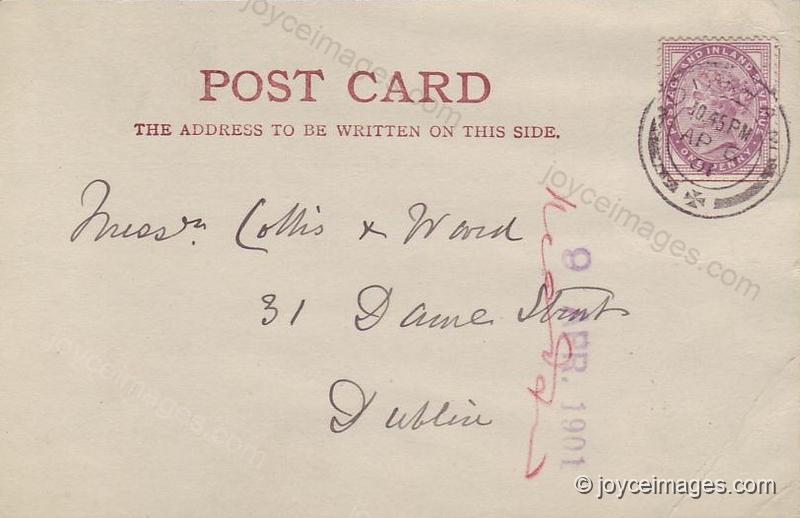 POST CARD
THE ADDRESS TO BE WRITTEN ON THIS SIDE.
POSTAGE AND INLAND REVENUE
ONE PENNY
10.45 PM
AP
01
Messrs Collis & Ward
31 Dame Street
Dublin
9 APR. 1901
joyceimages.com
joyceimages.com
joyceimages.com
© joyceimages.com